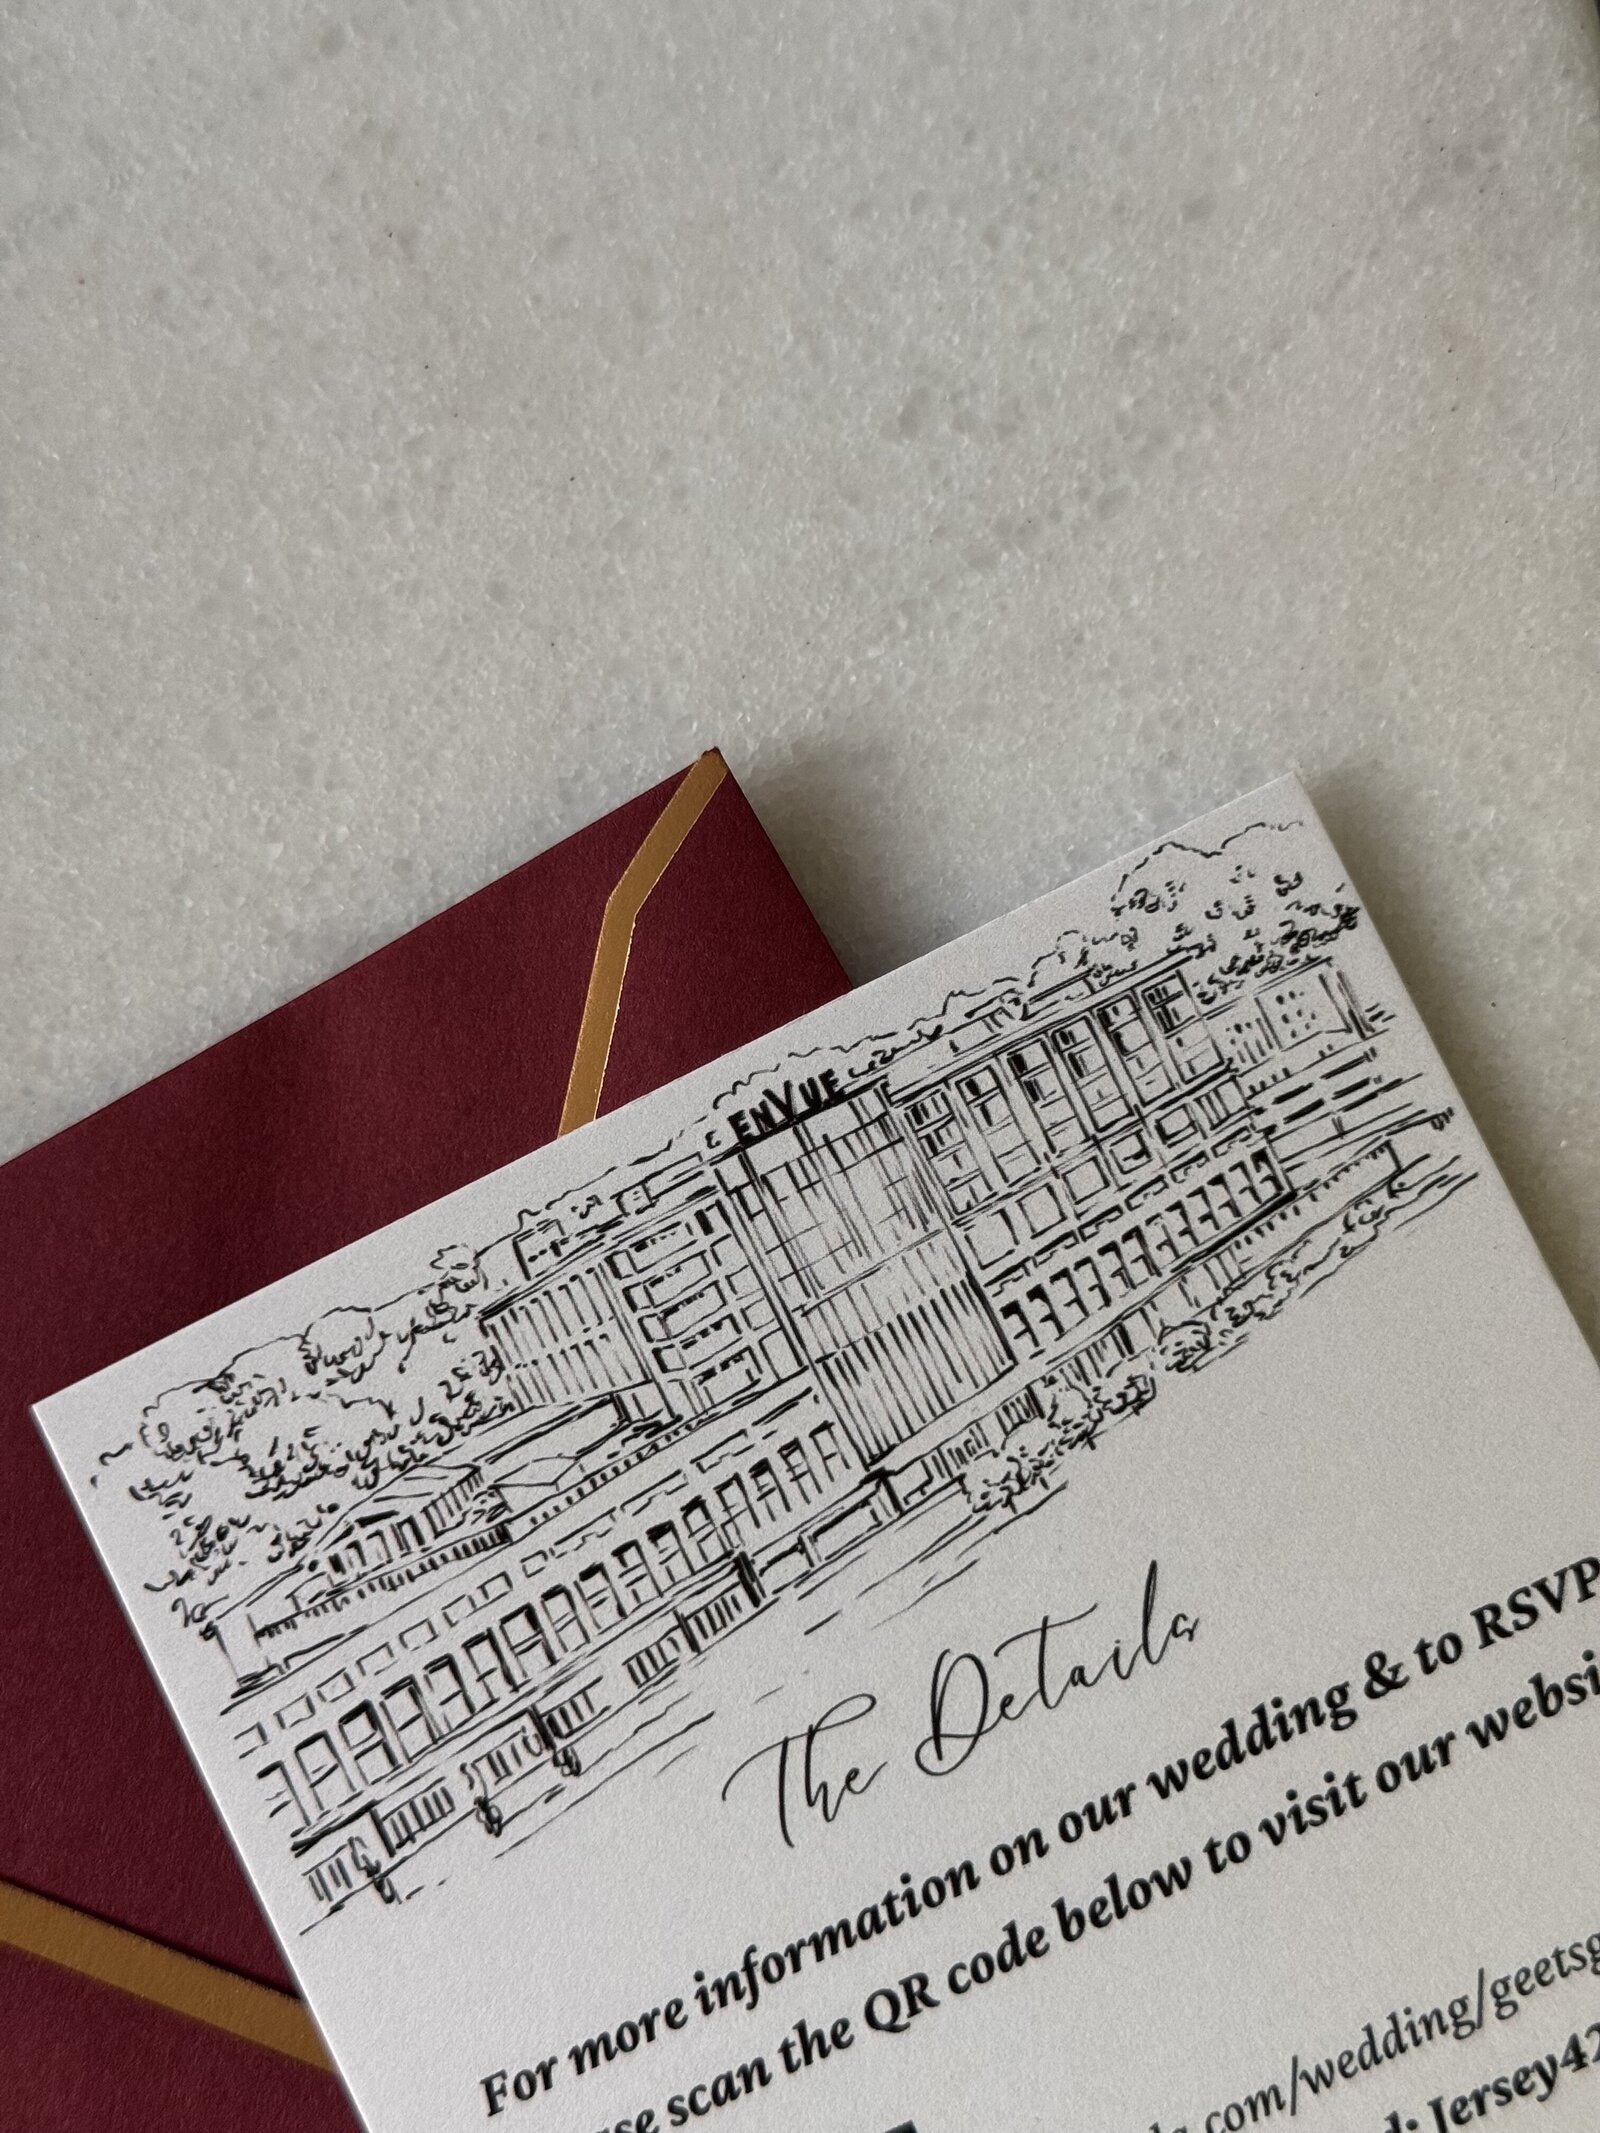 ENVUE
The Details
For more information on our wedding & to RSVP
scan the QR code below to visit our
.com/wedding/